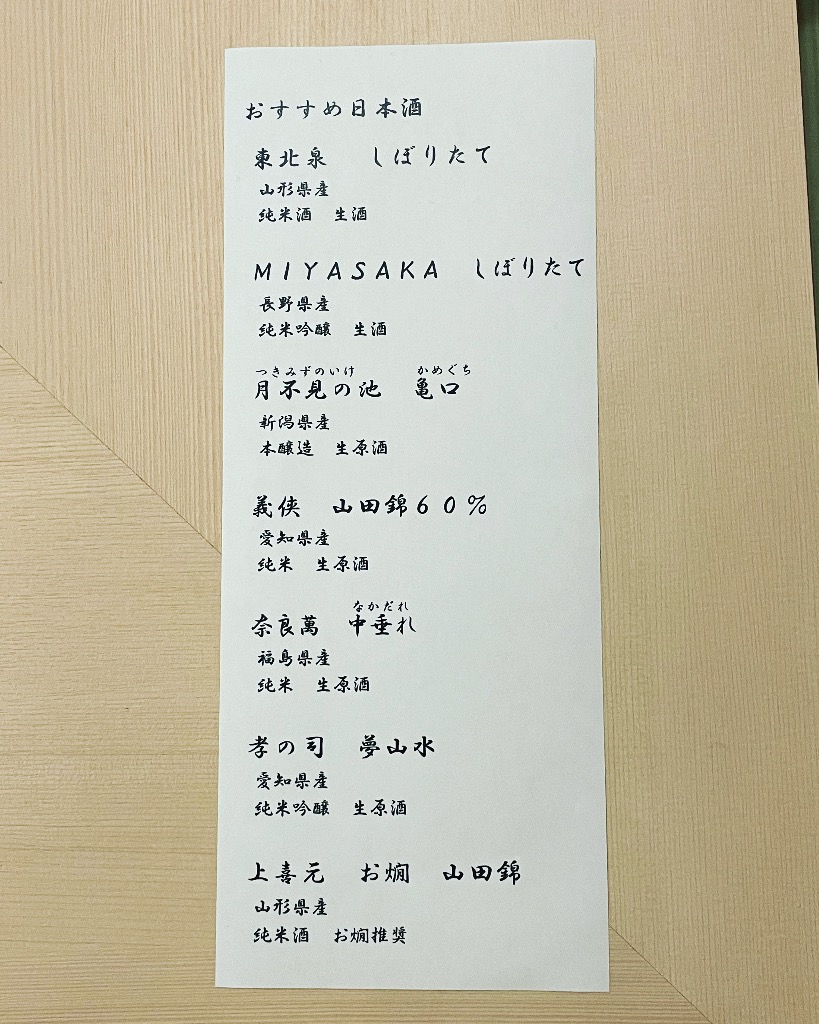 おすすめ日本酒
東北泉　しぼりたて
山形県産
純米酒　生酒
ＭＩＹＡＳＡＫＡ　しぼりたて
長野県産
純米吟醸　生酒
つきみずのいけ　かめぐち
月不見の池　亀口
新潟県産
本醸造　生原酒
義侠　山田錦６０％
愛知県産
純米　生原酒
なかだれ
奈良萬　中垂れ
福島県産
純米　生原酒
孝の司　夢山水
愛知県産
純米吟醸　生原酒
上喜元　お燗　山田錦
山形県産
純米酒　お燗推奨